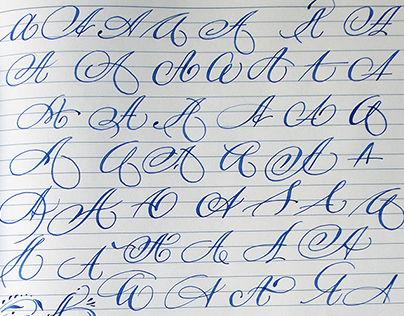 a A A A A A A
A A A A A A A
A A A A A A
A A A A A A
A A A A A A A
A A A A A A
A A A A A